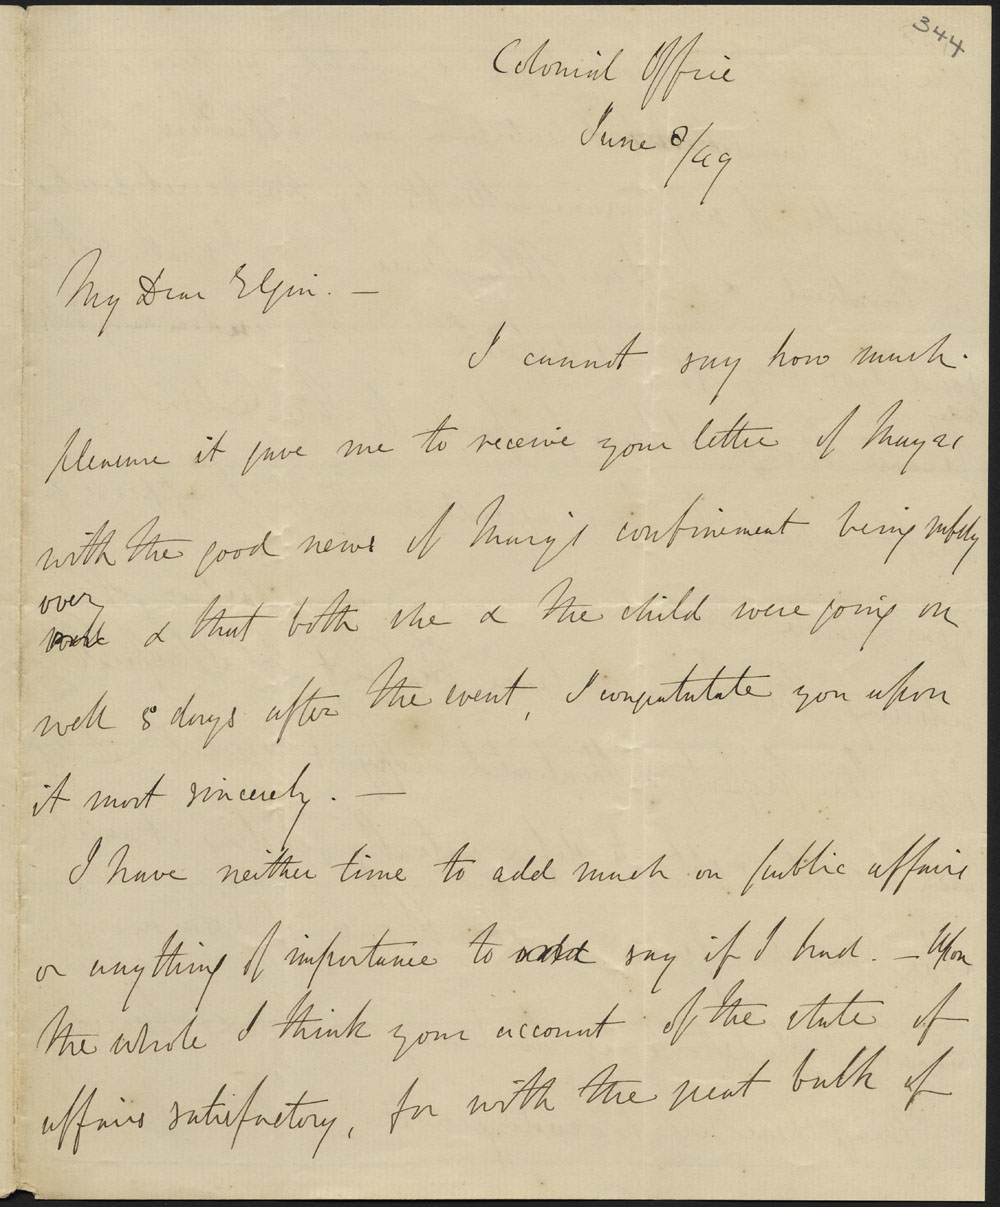 344
Colonial Office
June 8/49
My Dear Elgin. —
I cannot say how much
pleasure it gave me to receive your letter of May 21
with the good news of Mary's confinement being safely
over
& that both she & the child were going on
well 8 days after the event, I congratulate you upon
it most sincerely. —
I have neither time to add much on public affairs
or anything of importance to add say if I had. — Upon
the whole I think your account of the state of
affairs satisfactory, for with the great bulk of